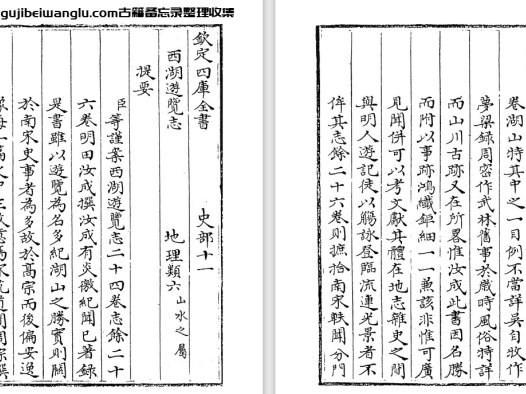 gujibeiwanglu.com古籍备忘录整理收集
欽定四庫全書 史部十一
西湖遊覽志 地理類六 山水之屬
提要
臣等謹案西湖遊覽志二十四卷志餘二十
六卷明田汝成撰汝成有炎徼紀聞已著録
是書雖以遊覽為名多紀湖山之勝實則關
於南宋史事者為多故於高宗而後偏安逸
豫每一篇之中三致意焉宋乾道間周淙撰
卷湖山特其中之一目例不當詳吳自牧作
夢梁録周密作武林舊事於歲時風俗特詳
而山川古跡又在所畧惟汝成此書因名勝
而附以事跡鴻纖鉅細一一兼該非惟可廣
見聞併可以考文獻其體在地志雜史之間
與明人遊記徒以觴詠登臨流連光景者不
侔其志餘二十六卷則摭拾南宋軼聞分門